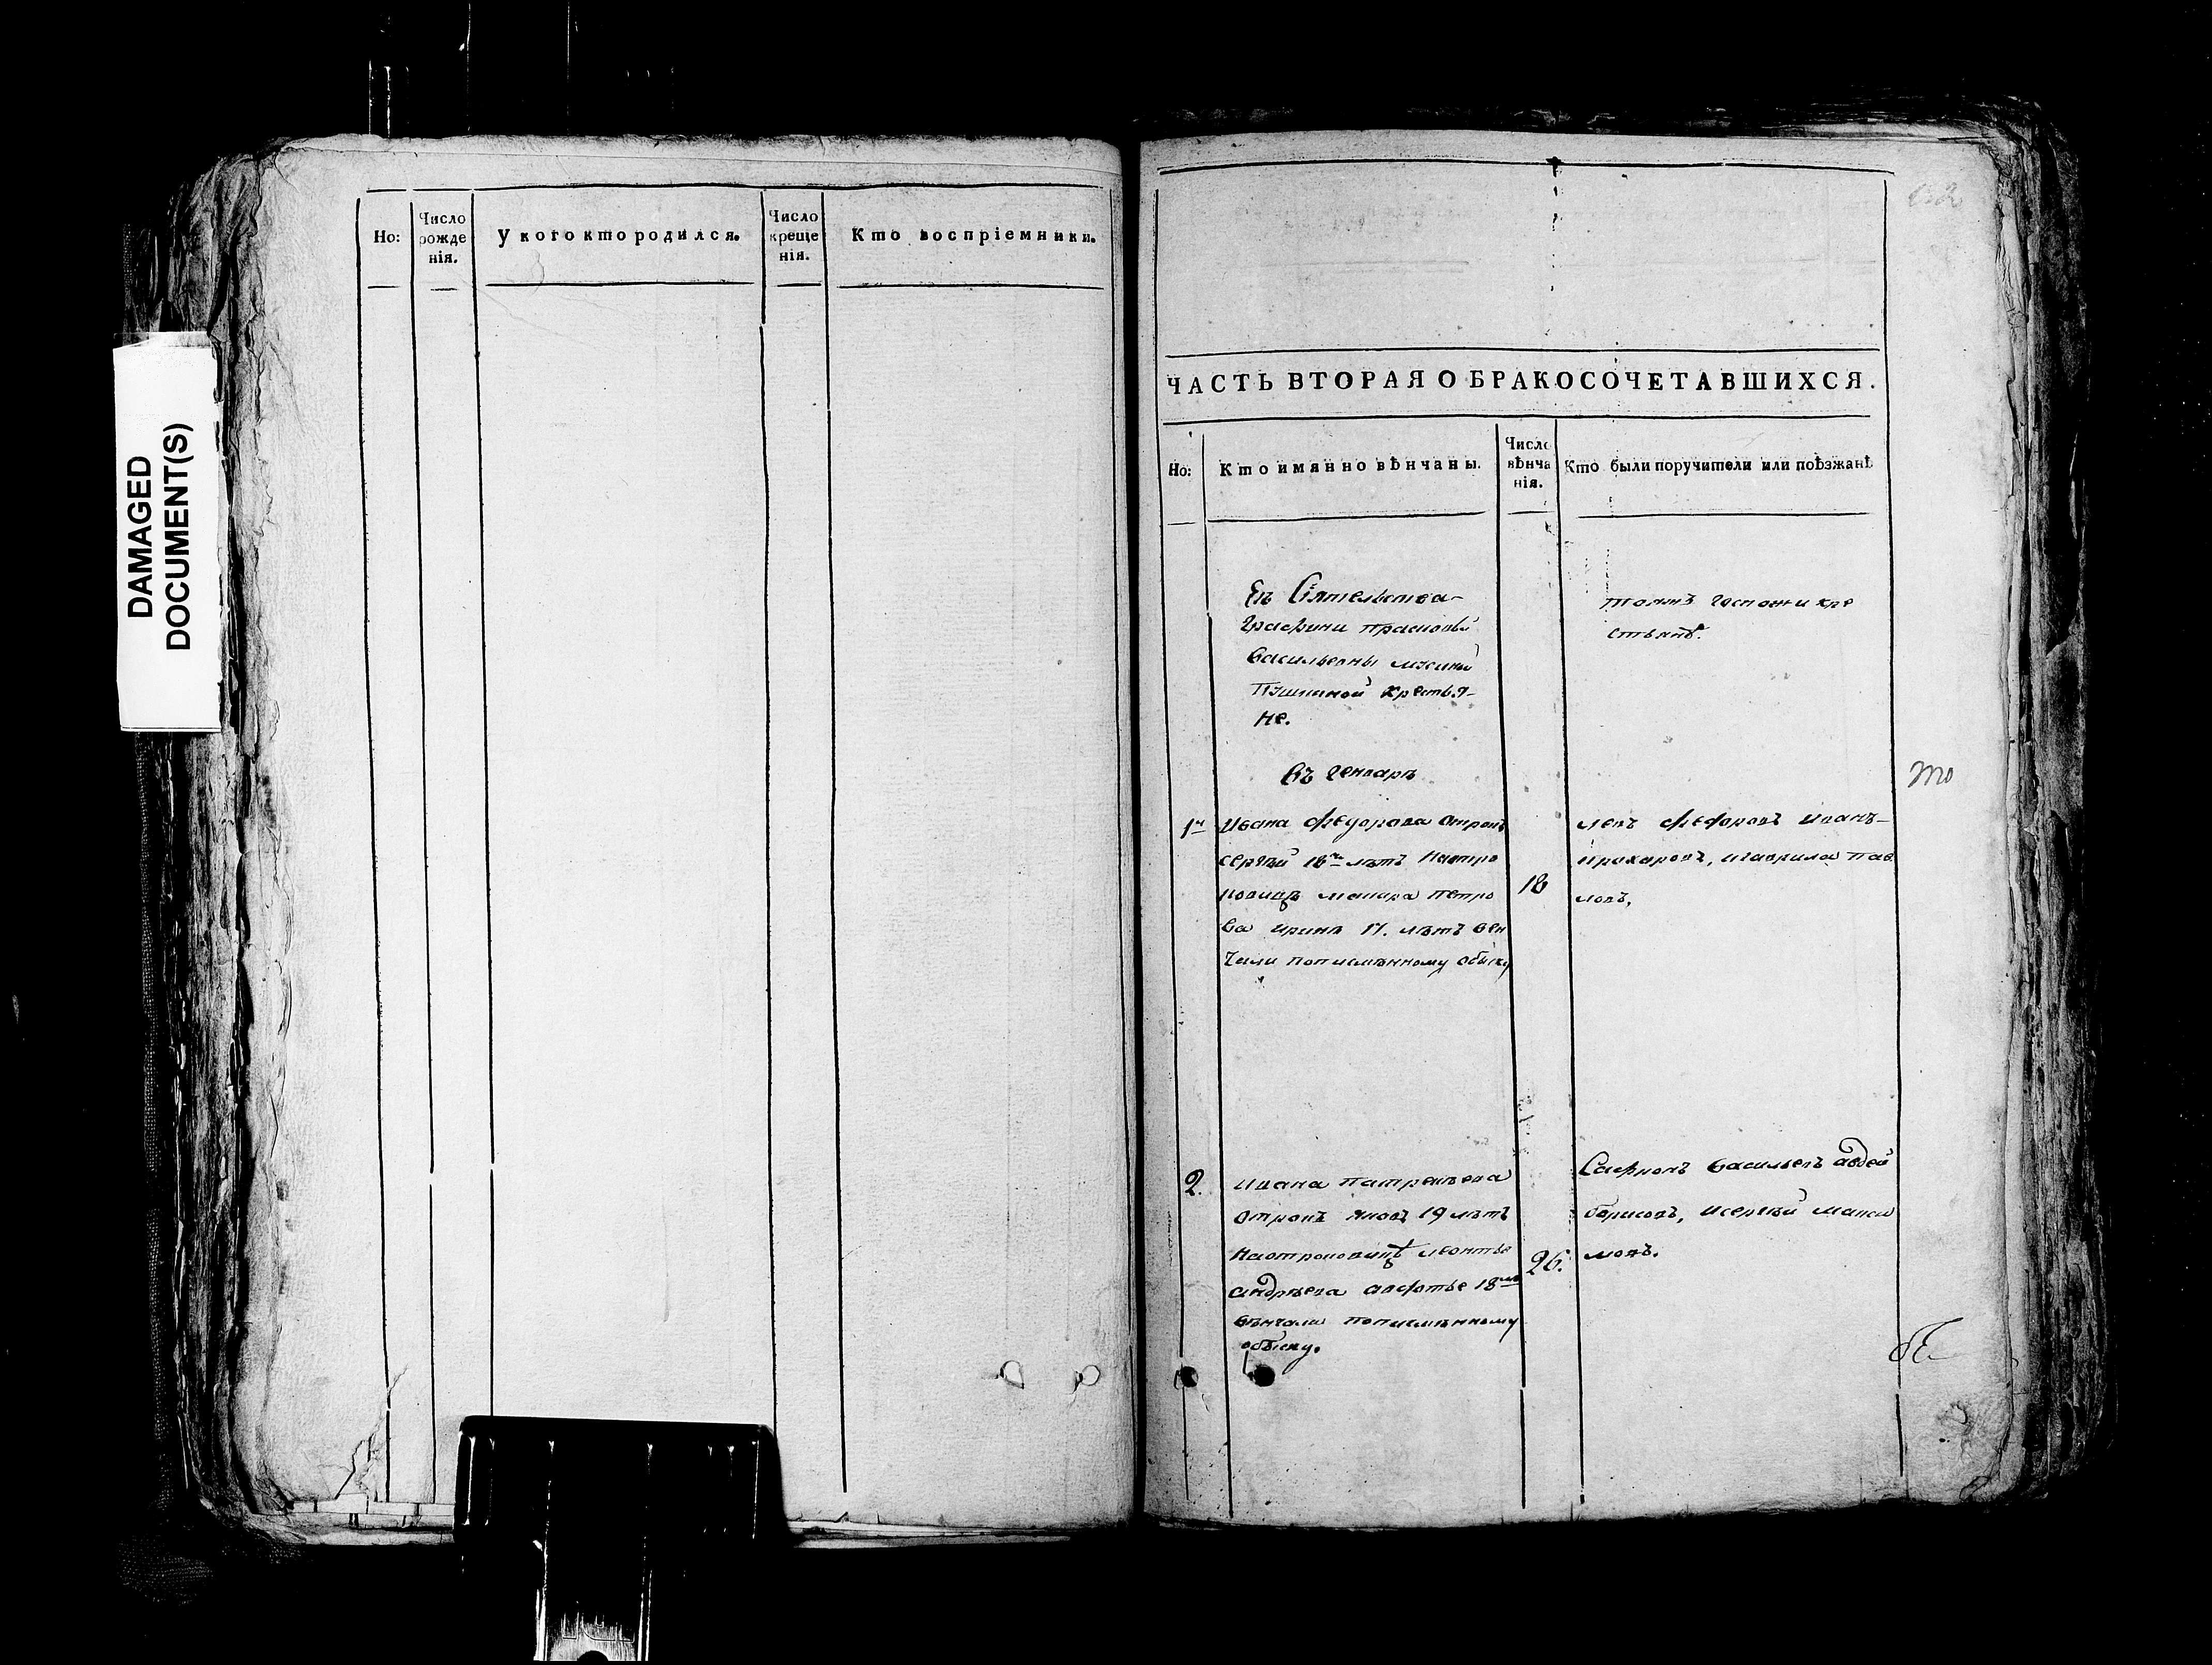 DAMAGED
DOCUMENT(S)
Но:
Число
рожде
нія.
У кого кто родился.
Число
креще
нія.
Кто воспріемники.
ЧАСТЬ ВТОРАЯ О БРАКОСОЧЕТАВШИХСЯ.
Но:
Кто имянно вѣнчаны.
Число
вѣнча
нія.
Кто были поручители или поѣзжанѣ
Еѣ Сіятельства
Графини Прасковьи
Васильевны Мусиной
Пушкиной крестья-
не.
тояжъ госпожи кре
стьянѣ.
Въ генварѣ
1й
Ивана Федорова отрокъ
сергѣй 18ти лѣтъ Наотро
ковицѣ макара петро
ва иринѣ 17. лѣтъ вен
чали пописменному обыску
18
левъ Федоровъ иванъ
прохаровъ, игаврила пав
ловъ,
2.
ивана патрекѣева
отрокъ яковъ 19 лѣтъ
Наотроковицѣ леонтья
андрѣева авдотье 18ти
вѣнчали пописменному
обыску.
26.
Сафронъ васильевъ авдей
борисовъ, исергѣй макси
мовъ.
то